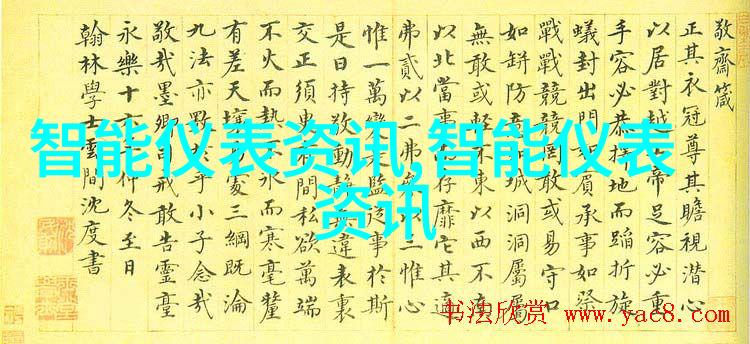 敬齋箴
正其衣冠尊其瞻視潛心
以居對越帝足容必重
手容必恭擇地而蹈折旋
蟻封出門如賓承事如祭
戰戰兢兢罔敢或易守口
如缾防意如城洞洞屬屬
無敢或輕不東以西不南
以北當事而存靡它其適
弗貳以二弗參以三惟心
惟一萬變是監從事於斯
是曰持敬動靜無違表裏
交正須臾有間私欲萬端
不火而熱不冰而寒毫釐
有差天壤易處三綱既淪
九法亦斁於乎小子念哉
敬哉墨卿司戒敢告靈臺
永樂十六年仲冬至日
翰林學士雲間沈度書
智能仪表资讯,智能仪表
资讯
书法欣赏
www.yac8.com